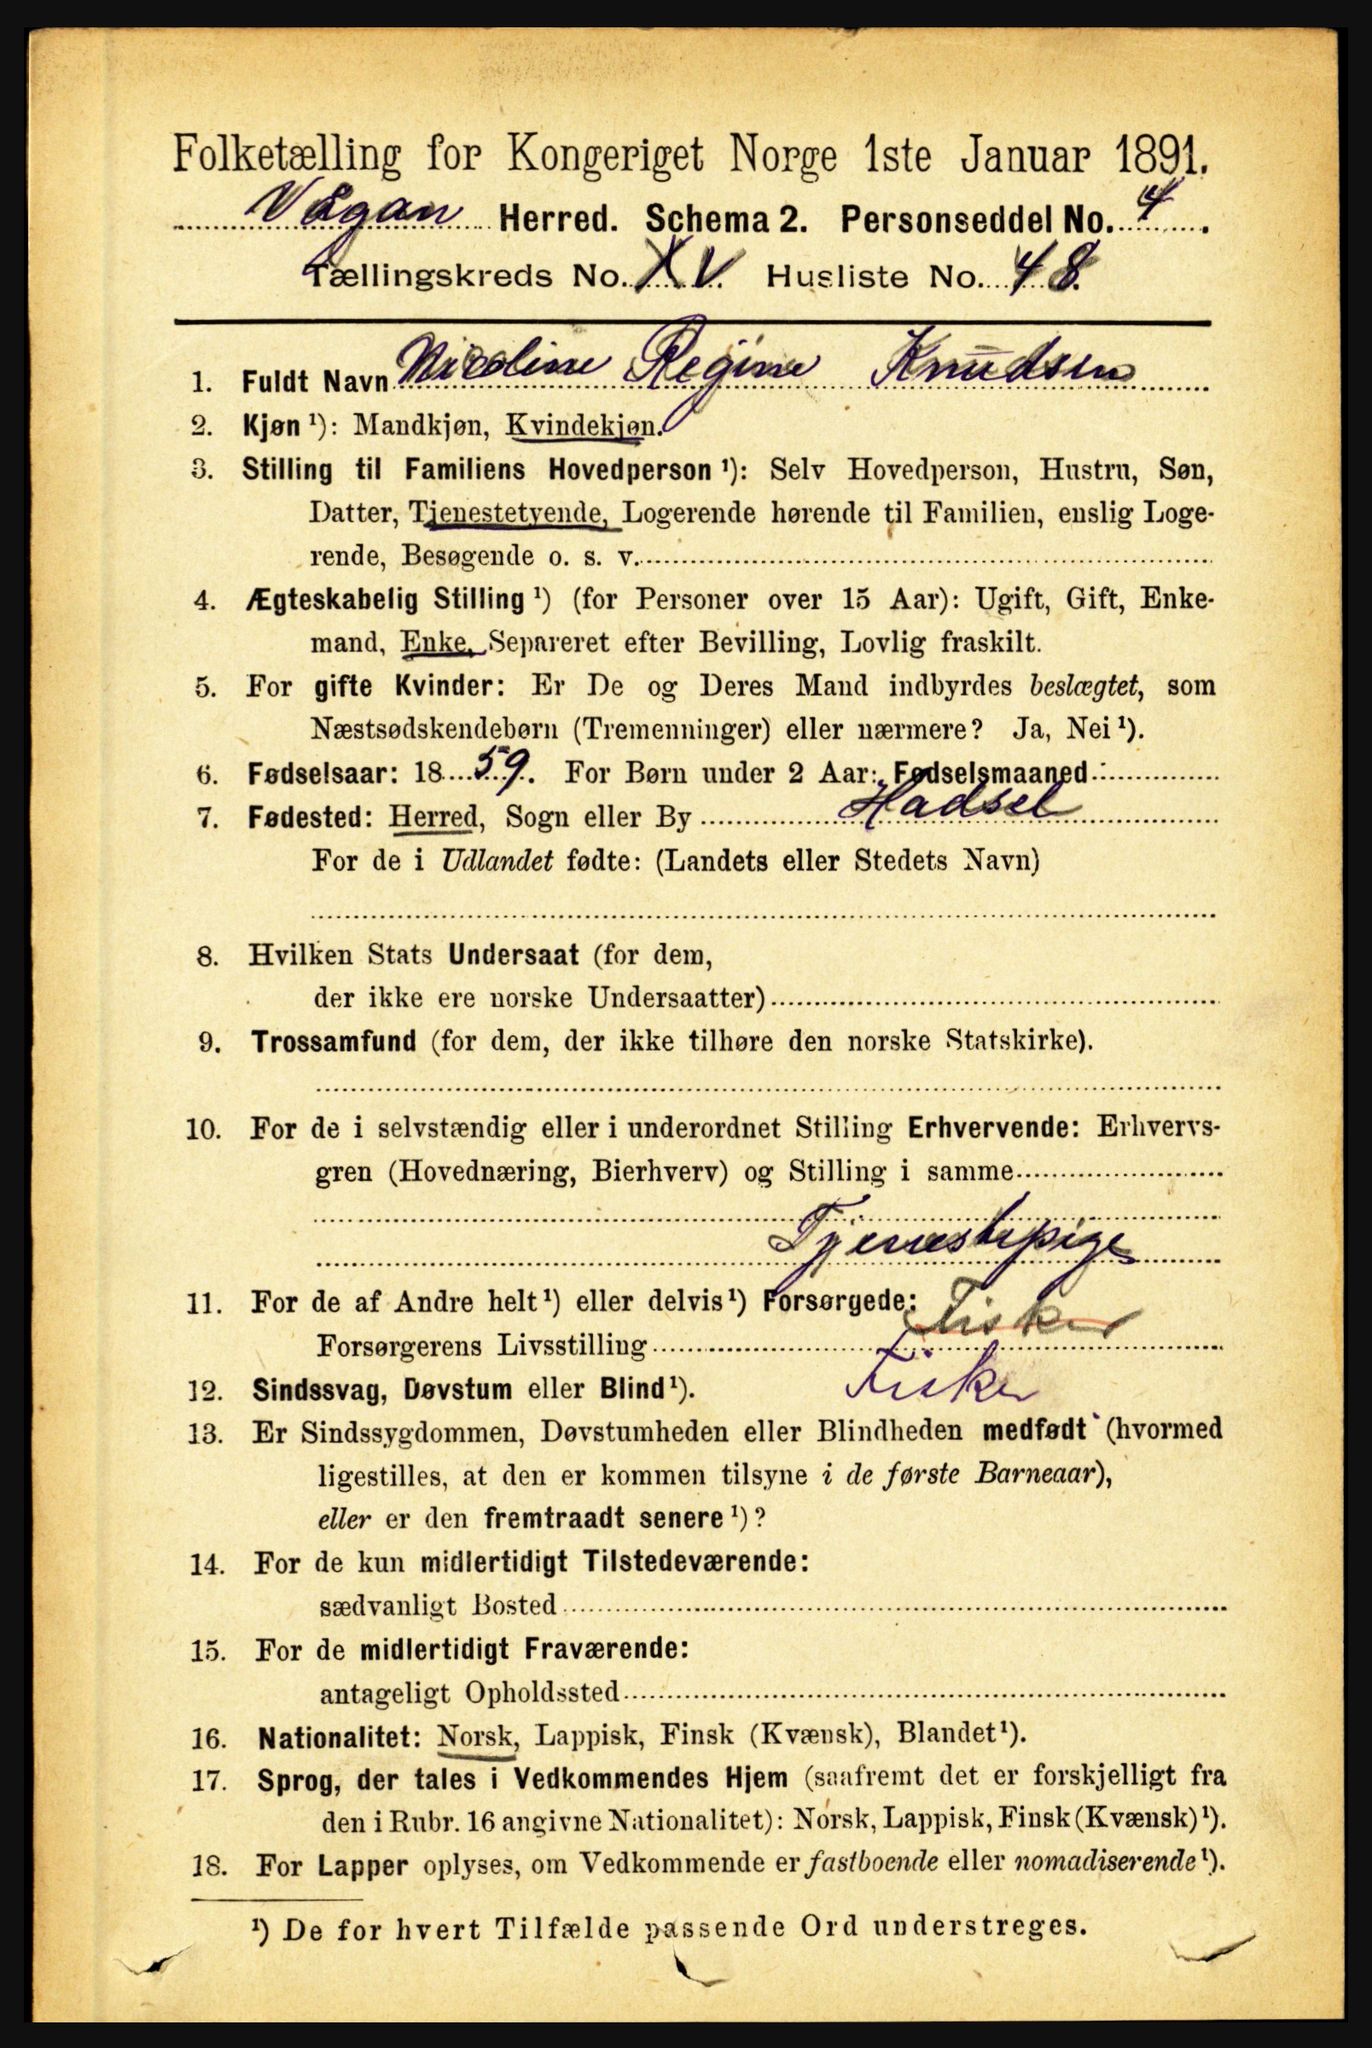 Folketælling for Kongeriget Norge 1ste Januar 1891.
Vågan Herred. Schema 2. Personseddel No. 4.
Tællingskreds No. XV. Husliste No. 48.
1. Fuldt Navn Nicoline Regine Knudsen
2. Kjøn¹): Mandkjøn, Kvindekjøn.
3. Stilling til Familiens Hovedperson¹): Selv Hovedperson, Hustru, Søn,
Datter, Tjenestetyende, Logerende hørende til Familien, enslig Loge-
rende, Besøgende o. s. v.
4. Ægteskabelig Stilling¹) (for Personer over 15 Aar): Ugift, Gift, Enke-
mand, Enke, Separeret efter Bevilling, Lovlig fraskilt.
5. For gifte Kvinder: Er De og Deres Mand indbyrdes beslægtet, som
Næstsødskendebørn (Tremenninger) eller nærmere? Ja, Nei¹).
6. Fødselsaar: 1859. For Børn under 2 Aar: Fødselsmaaned
7. Fødested: Herred, Sogn eller By Hadsel
For de i Udlandet fødte: (Landets eller Stedets Navn)
8. Hvilken Stats Undersaat (for dem,
der ikke ere norske Undersaatter)
9. Trossamfund (for dem, der ikke tilhøre den norske Statskirke).
10. For de i selvstændig eller i underordnet Stilling Erhvervende: Erhvervs-
gren (Hovednæring, Bierhverv) og Stilling i samme
Tjenestepige
11. For de af Andre helt¹) eller delvis¹) Forsørgede:
Forsørgerens Livsstilling Fisker
12. Sindssvag, Døvstum eller Blind¹). Fisker
13. Er Sindssygdommen, Døvstumheden eller Blindheden medfødt (hvormed
ligestilles, at den er kommen tilsyne i de første Barneaar),
eller er den fremtraadt senere¹)?
14. For de kun midlertidigt Tilstedeværende:
sædvanligt Bosted
15. For de midlertidigt Fraværende:
antageligt Opholdssted
16. Nationalitet: Norsk, Lappisk, Finsk (Kvænsk), Blandet¹).
17. Sprog, der tales i Vedkommendes Hjem (saafremt det er forskjelligt fra
den i Rubr. 16 angivne Nationalitet): Norsk, Lappisk, Finsk (Kvænsk)¹).
18. For Lapper oplyses, om Vedkommende er fastboende eller nomadiserende¹).
¹) De for hvert Tilfælde passende Ord understreges.